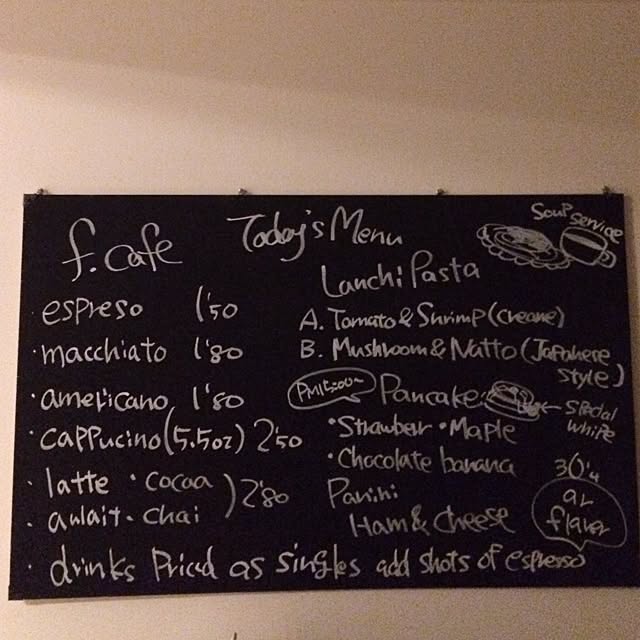 f. cafe
Today's Menu
Soup service
espreso 1'50
・macchiato 1'80
・americano 1'80
・cappucino (5.5oz) 2'50
・latte ・cocoa
・aulait・chai ) 2'80
Lanchi Pasta
A. Tomato & Shrimp (creame)
B. Mushroom & Natto (Japanese
style)
Pancake
special
whipe
・Strawber ・Maple
・Chocolate banana
Panini
Ham & cheese
・drinks Priced as singles add shots of espresso